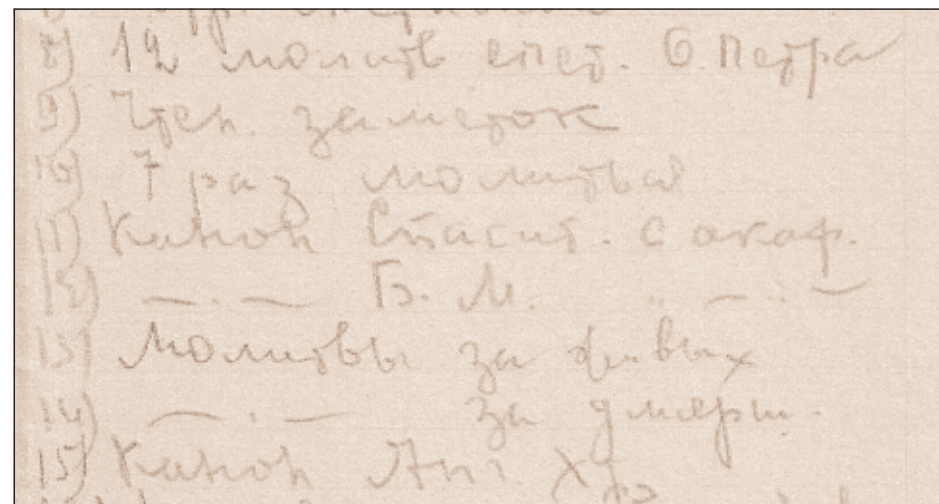 8) 12 молитв
9) Чтен. заметок
10) 7 раз молитва
11) Канон Спасит. с акаф.
12) — . — Б. М. " — . —
13) Молитвы за живых
14) — . — за умерш.
15) Канон Анг